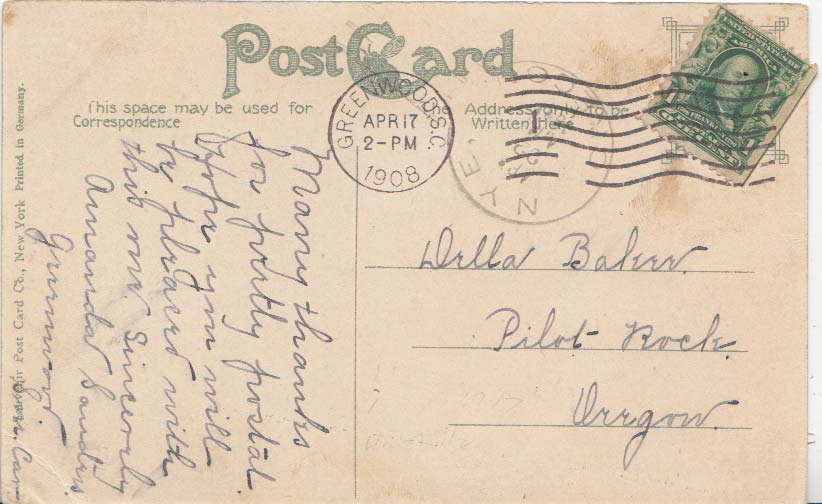 Post Card
This space may be used for
Correspondence
The Address only to be
Written Here
GREENWOOD, S.C.
APR 17
2-PM
1908
UNITED STATES OF AMERICA
FRANKLIN
Many thanks
for pretty postal
hope you will
be pleased with
this one. Sincerely
Amanda Sanders.
Greenwood.
So. Car
Della Baker.
Pilot Rock.
Oregon.
Post Card Co., New York Printed in Germany.